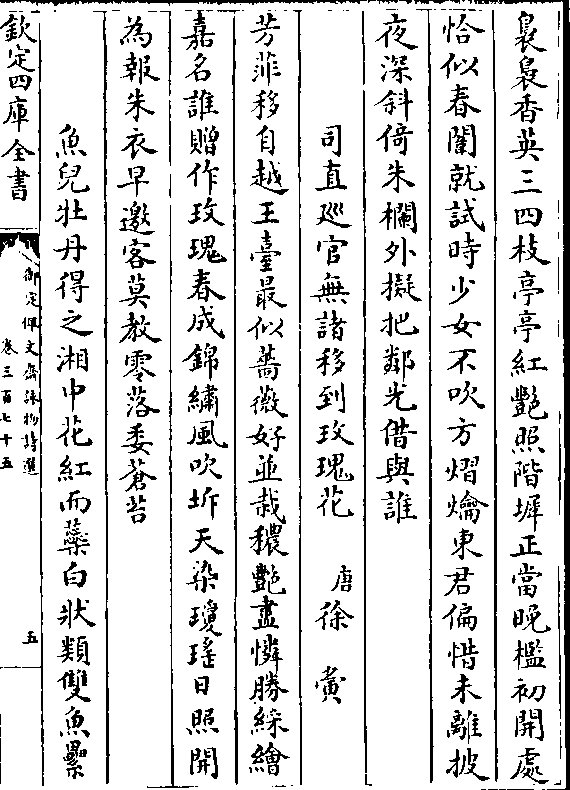 裊裊香英三四枝亭亭紅艷照階墀正當晚檻初開處
恰似春闈就試時少女不吹方熠爚東君偏惜未離披
夜深斜倚朱欄外擬把鄰光借與誰
司直廵官無諸移到玫瑰花 唐徐夤
芳菲移自越王臺最似薔薇好並栽穠艷盡憐勝綵繪
嘉名誰贈作玫瑰春成錦繡風吹坼天染瓊瑤日照開
為報朱衣早邀客莫教零落委蒼苔
魚兒牡丹得之湘中花紅而蘂白狀類雙魚纍
欽定四庫全書
御定佩文齋詠物詩選
卷三百七十五
五